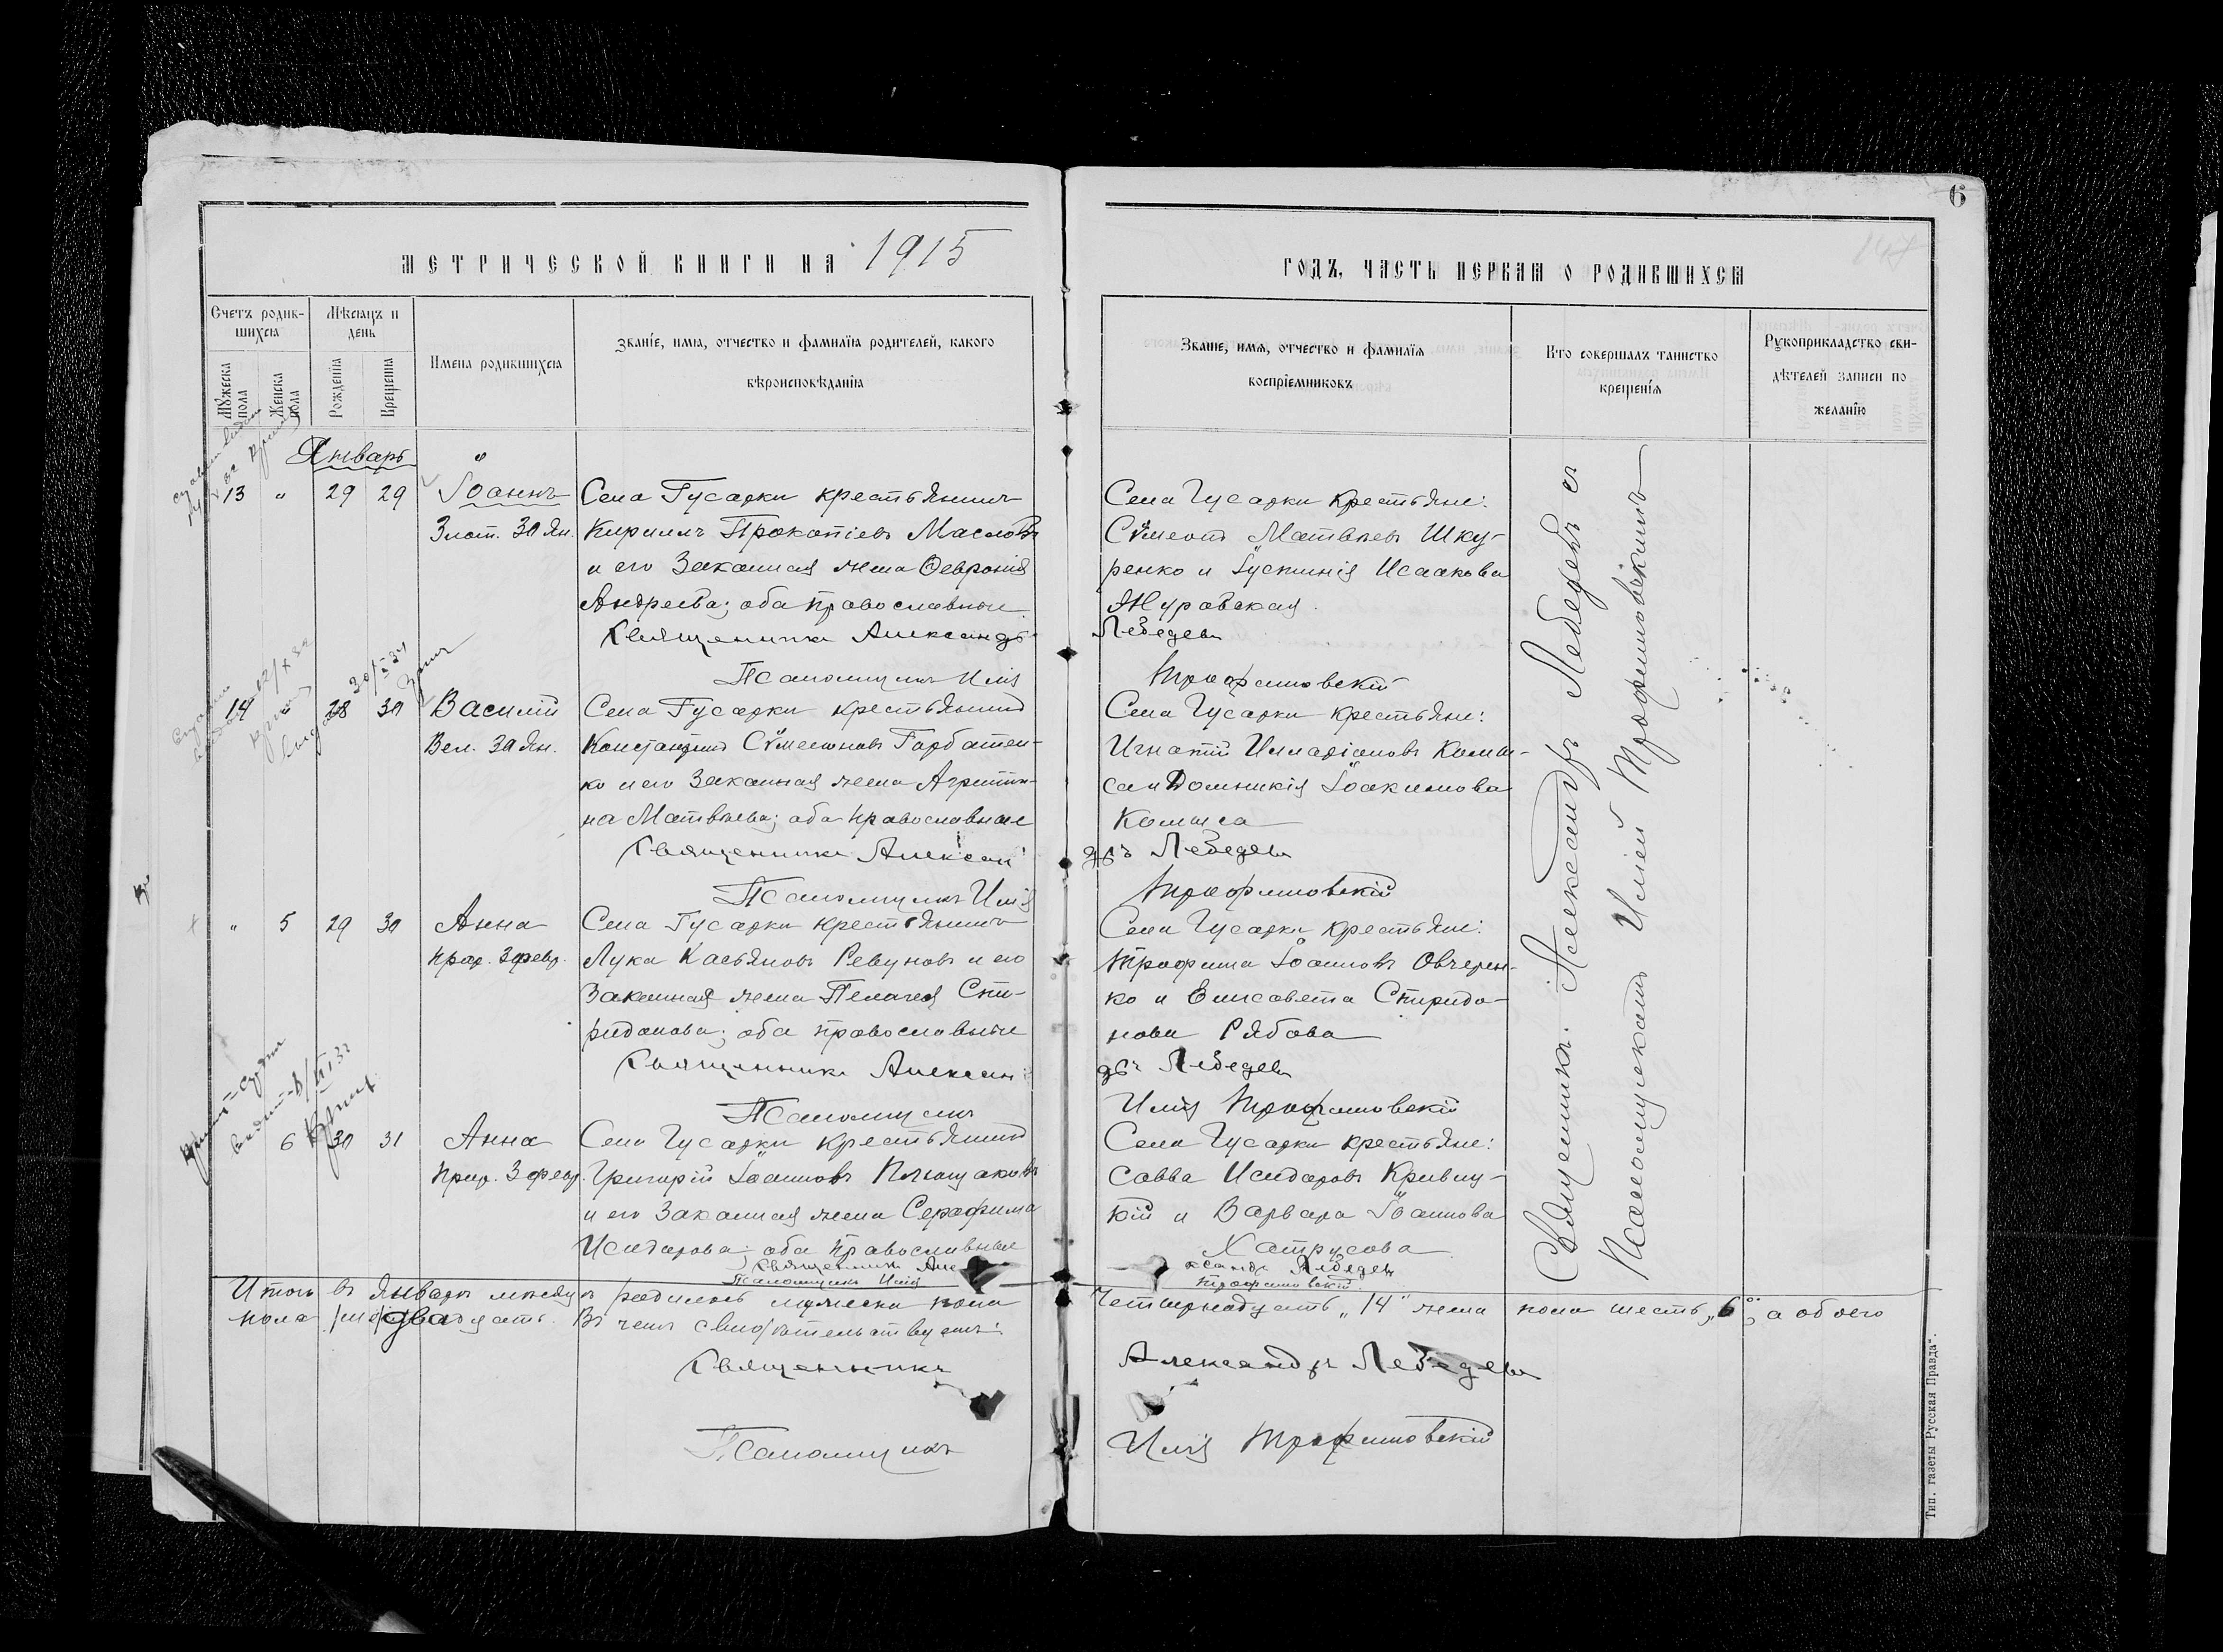 6
МЕТРИЧЕСКОЙ КНИГИ НА 1915
ГОДЪ, ЧАСТЬ ПЕРВАЯ О РОДИВШИХСЯ
Счетъ родив-
шихся
Мѣсяцъ и
день
Мужеска
пола
Женска
пола
Рожденія
Крещенія
Имена родившихся
Званіе, имя, отчество и фамилія родителей, какого
вѣроисповѣданія
Званіе, имя, отчество и фамилія
воспріемниковъ
Кто совершалъ таинство
крещенія
Рукоприкладство сви-
дѣтелей записи по
желанію
Январь
13 " 29 29 Іоаннъ
Злат. 30 Ян.
Села Гусарки крестьянинъ
Кириллъ Прокопіевъ Масловъ
и его законная жена Ѳевронія
Андреева; оба православные
Села Гусарки крестьяне:
Сѵмеонъ Матвѣевъ Шку-
ренко и Іустинія Исаакова
Журавская
Священникъ Александръ Лебедевъ
Псаломщикъ Илія Трофимовскій
14 " 28 30 Василій
Вел. 30 Ян.
Села Гусарки крестьянинъ
Константинъ Сѵмеоновъ Горбатен-
ко и его законная жена Агрипи-
на Матвѣева; оба православные
Села Гусарки крестьяне:
Игнатій Илларіоновъ
Домникія Іоакимова
Священникъ Александръ Лебедевъ
Псаломщикъ Илія Трофимовскій
" 5 29 30 Анна
прор. 3 февр.
Села Гусарки крестьянинъ
Лука Касьяновъ Ревуновъ и его
законная жена Пелагея Спи-
ридонова; оба православные
Села Гусарки крестьяне:
Трофимъ Іоанновъ Овчерен-
ко и Елисавета Спиридо-
нова Рябова
Священникъ Александръ Лебедевъ
Псаломщикъ Илія Трофимовскій
6 30 31 Анна
Прор. 3 февр.
Села Гусарки крестьянинъ
Григорій Іоанновъ
и его законная жена Серафима
Исидорова; оба православные
Села Гусарки крестьяне:
Савва Исидоровъ Кривиц-
кій и Варвара Іоаннова
Хатрусова
Священникъ Александръ Лебедевъ
Псаломщикъ Илія Трофимовскій
Священникъ Александръ Лебедевъ съ
Псаломщикомъ Иліей Трофимовскимъ
Итого въ Январѣ мѣсяцѣ родилось мужеска пола четырнадцать „14" жена пола шесть „6", а обоего
пола двадцать. Въ чемъ свидѣтельствуемъ:
Священникъ Александръ Лебедевъ
Псаломщикъ Илія Трофимовскій
Тип. газеты Русская Правда".